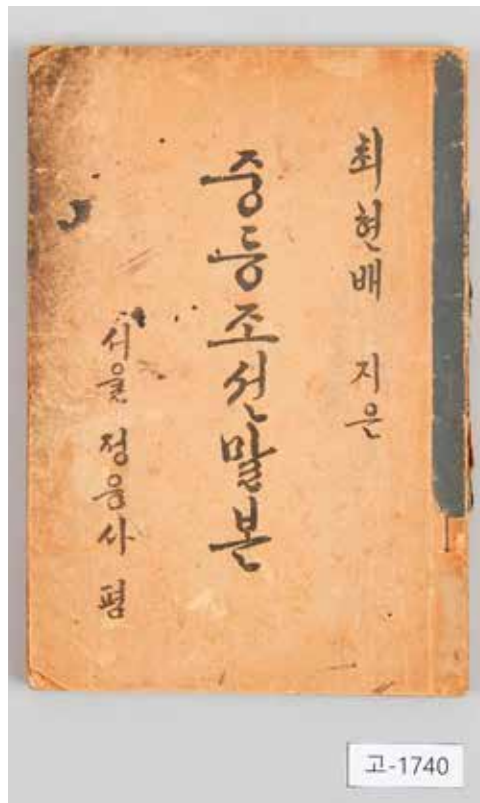 최현배 지은
중등조선말본
서울 정음사 폄
고-1740